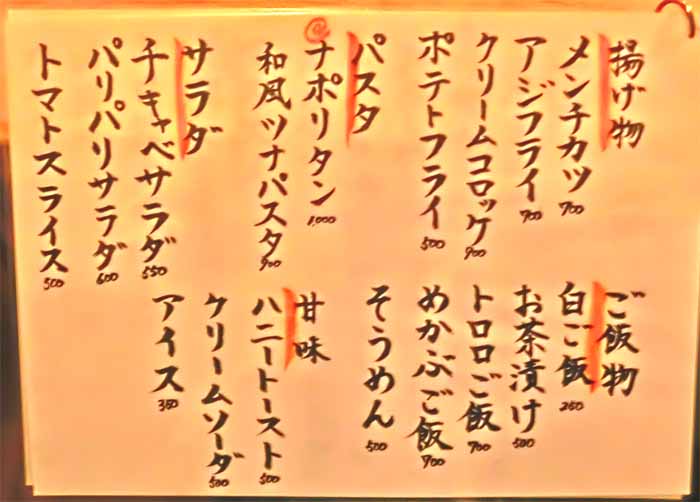 揚げ物
メンチカツ 700
アジフライ 700
クリームコロッケ 900
ポテトフライ 500
パスタ
ナポリタン 1,000
和風ツナパスタ 900
サラダ
千キャベサラダ 550
パリパリサラダ 600
トマトスライス 500
ご飯物
白ご飯 250
お茶漬け 500
トロロご飯 700
めかぶご飯 700
そうめん 500
甘味
ハニートースト 500
クリームソーダ 500
アイス 350